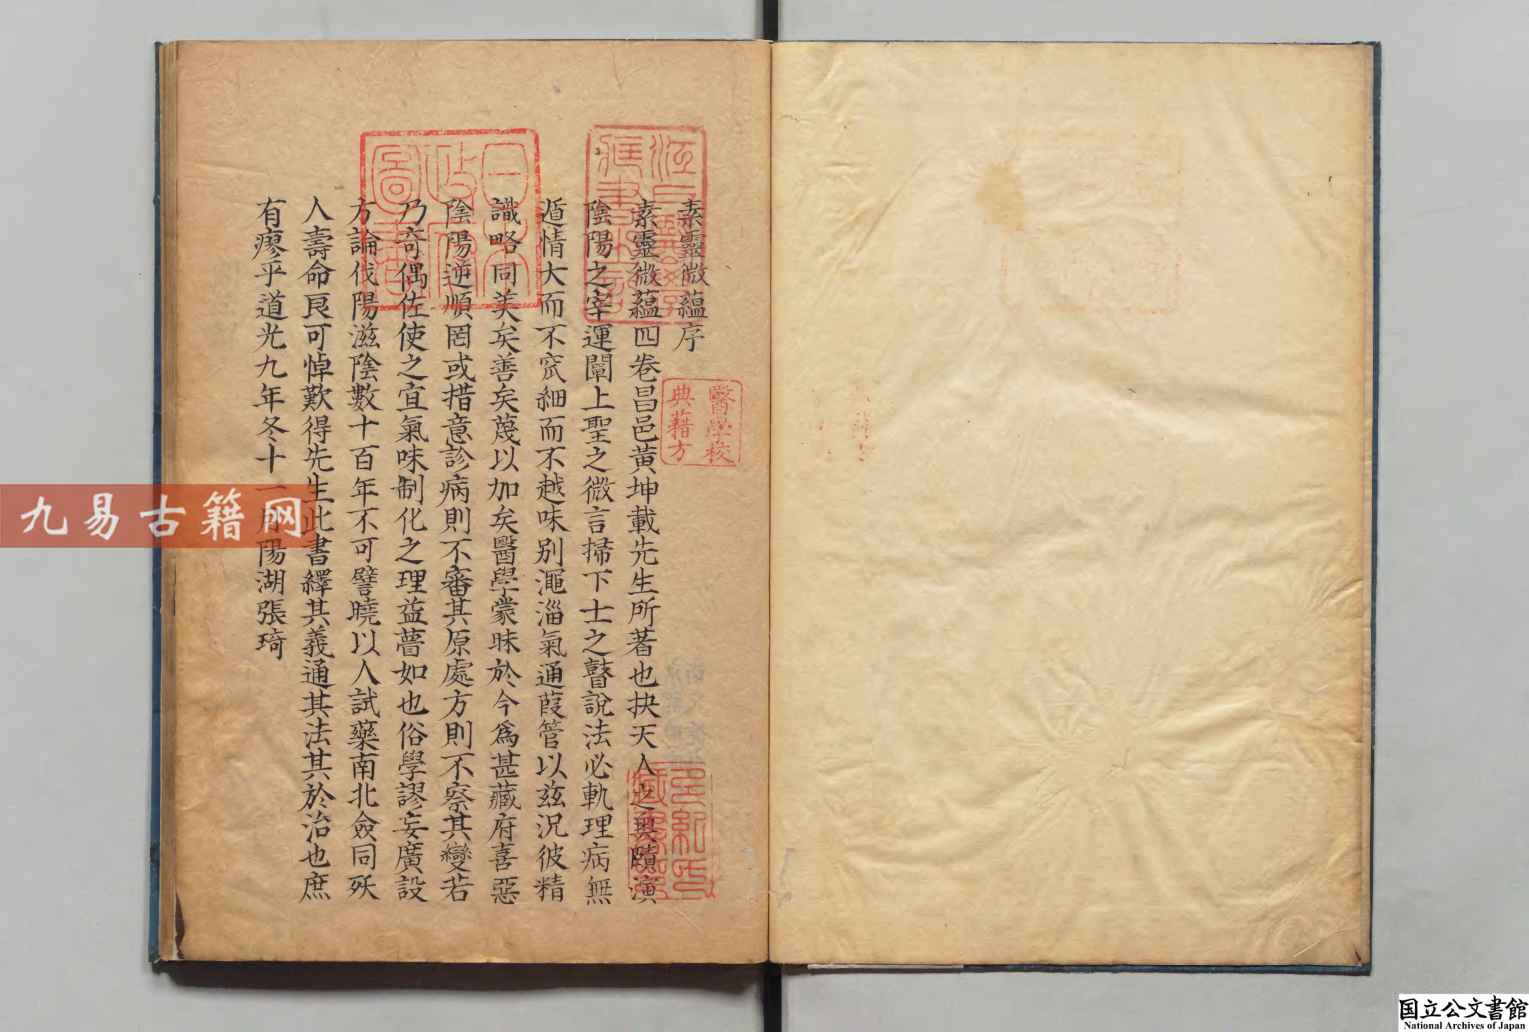 素靈微蘊序
素靈微蘊四卷昌邑黃坤載先生所著也抉天人之奧賾演
陰陽之宰運闡上聖之微言掃下士之瞽說法必軌理病無
遁情大而不窕細而不越味別澠淄氣通葭管以茲況彼精
識略同美矣善矣蔑以加矣醫學蒙昧於今爲甚藏府喜惡
陰陽逆順罔或措意診病則不審其原處方則不察其變若
乃奇偶佐使之宜氣味制化之理益瞢如也俗學謬妄廣設
方論伐陽滋陰數十百年不可譬曉以人試藥南北僉同殀
人壽命良可悼歎得先生此書繹其義通其法其於治也庶
有瘳乎道光九年冬十一月陽湖張琦
醫學校
典藉方
日本
政府
圖書
九易古籍网
国立公文書館
National Archives of Japan